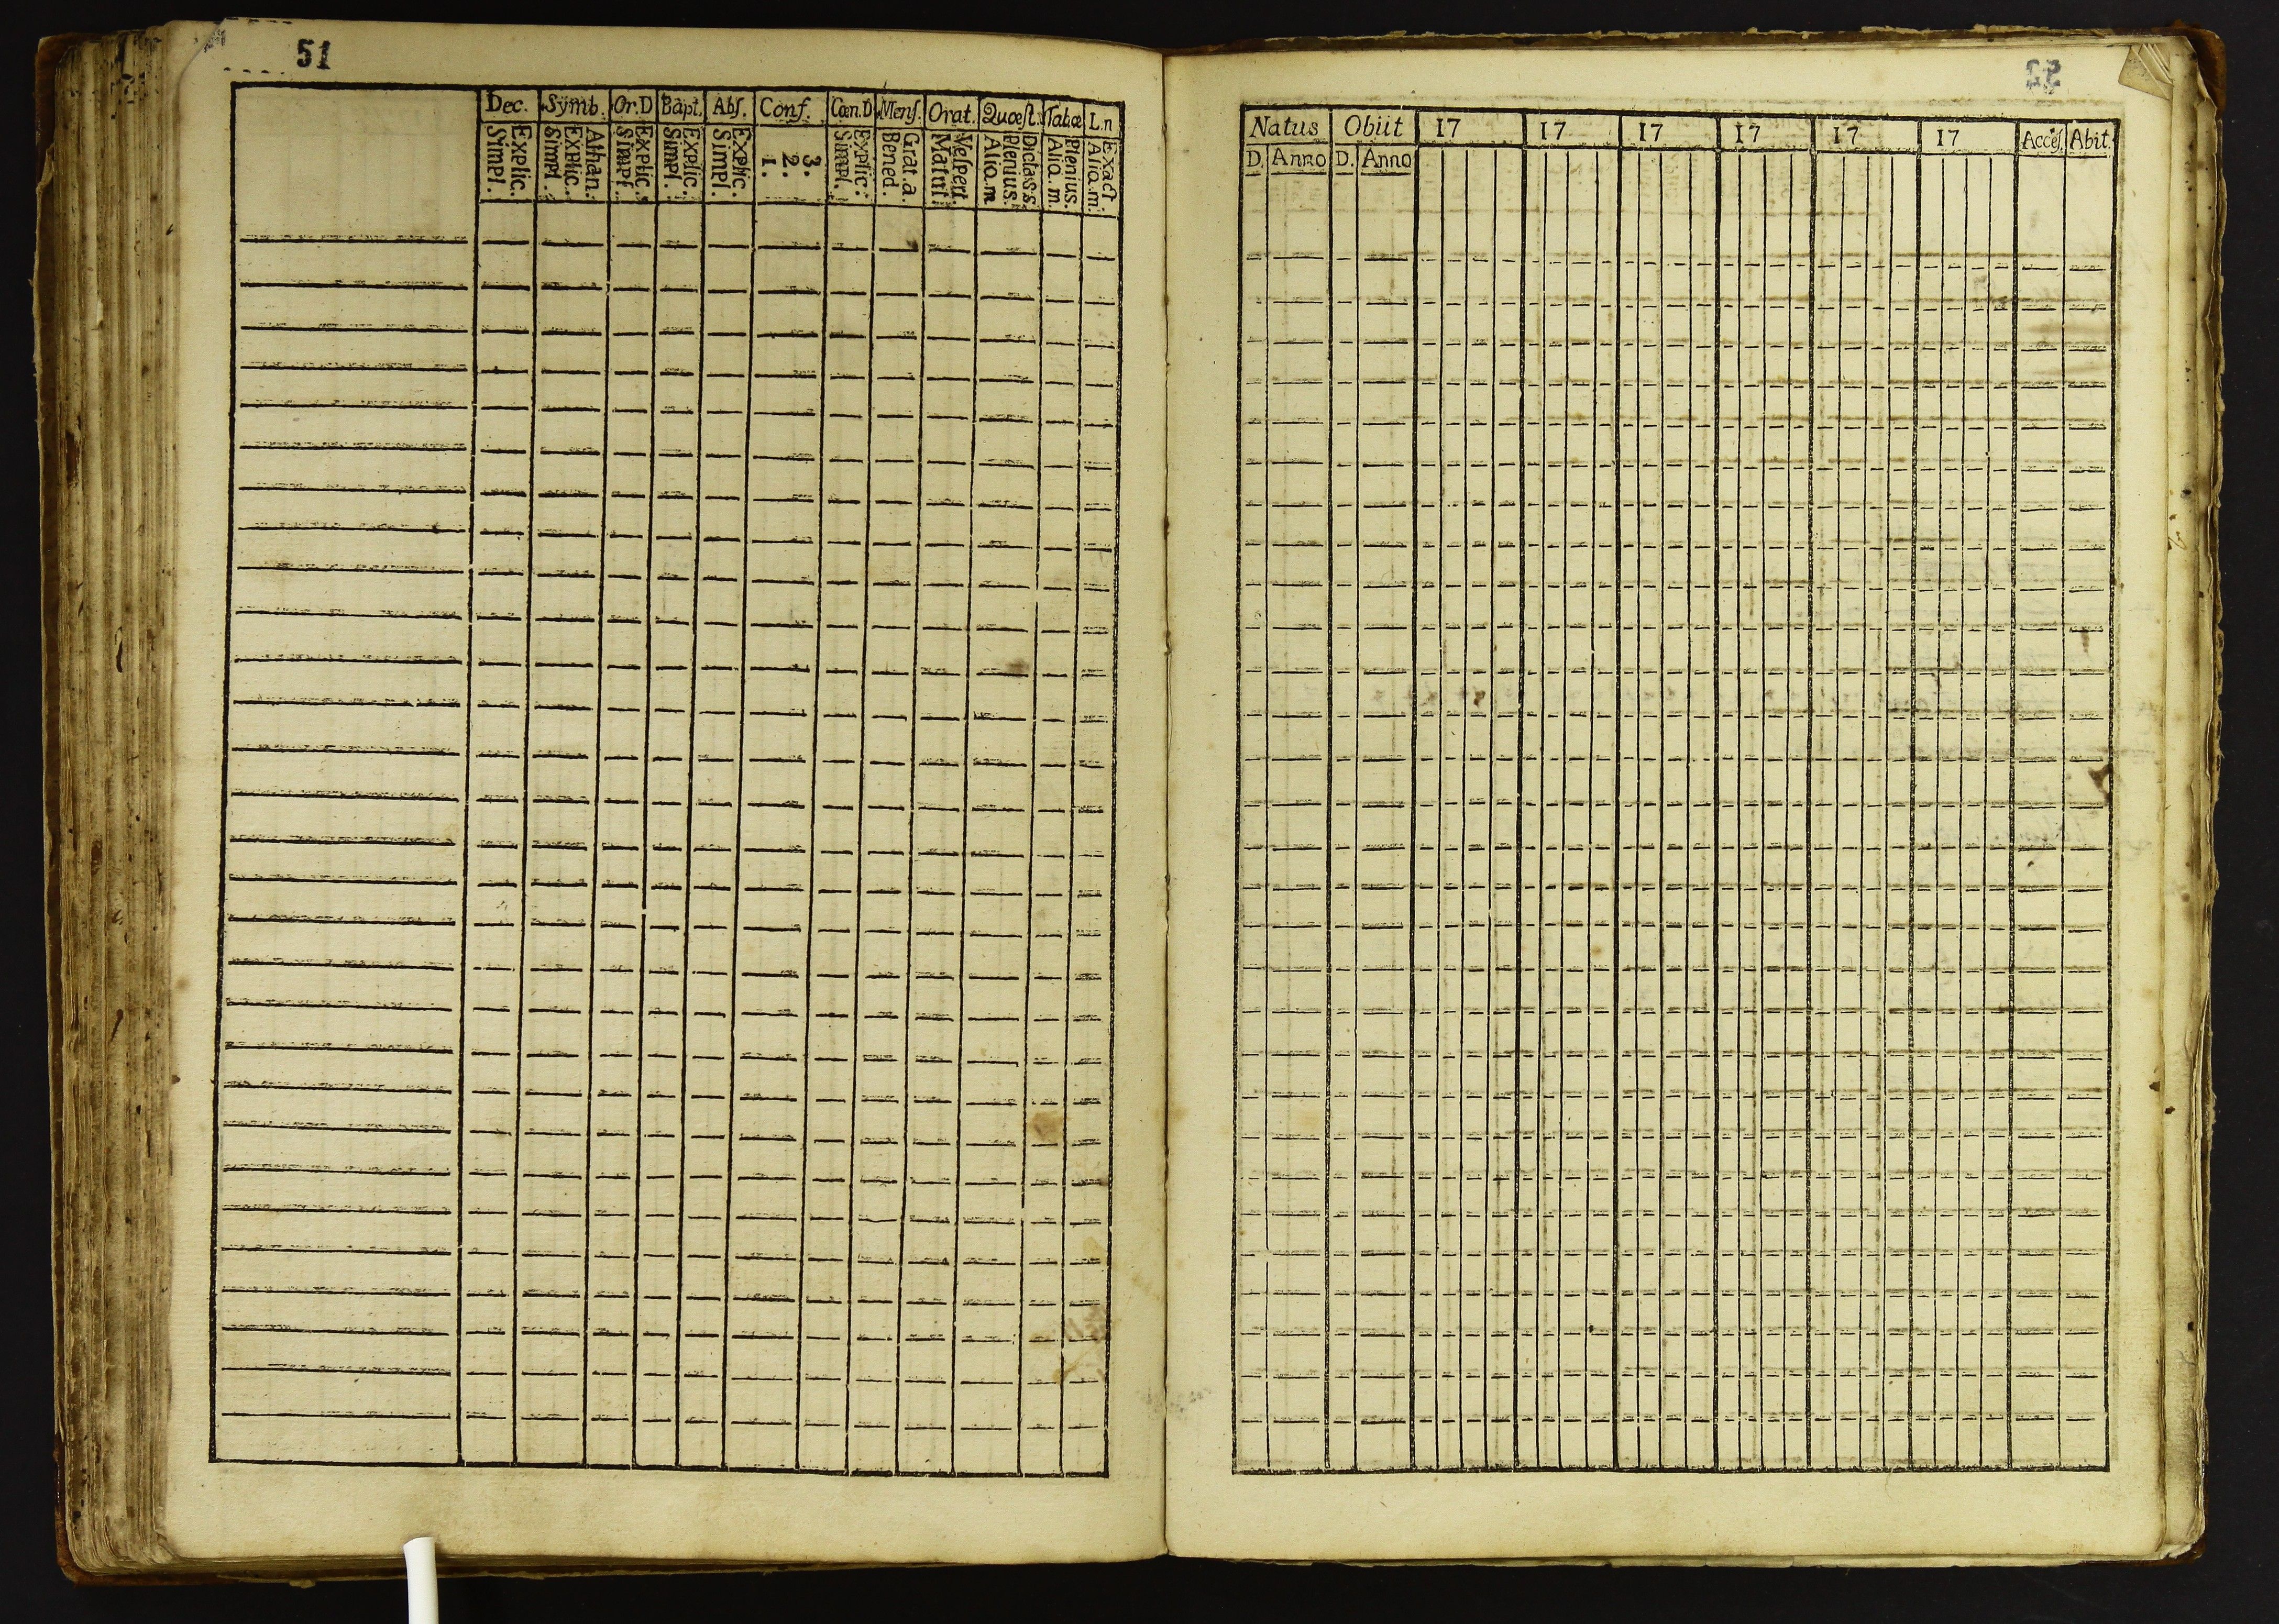 51
Dec. Symb. Or.D Bapt. Abſ. Conf. Cœn.D Menſ. Orat. Quæſt. Tab.œ L.n
Explic. Simpl.
Athan. Explic. Simpl.
Explic. Simpl.
Explic. Simpl.
Explic. Simpl.
3. 2. 1.
Explic. Simpl.
Grat.a. Bened.
Vespert. Matut.
Dicta S.S. Plenius. Aliq.m
Plenius. Aliq.m.
Exact Aliq.m.
52
Natus Obiit 17 17 17 17 17 17 Acceſ. Abit.
D. Anno D. Anno